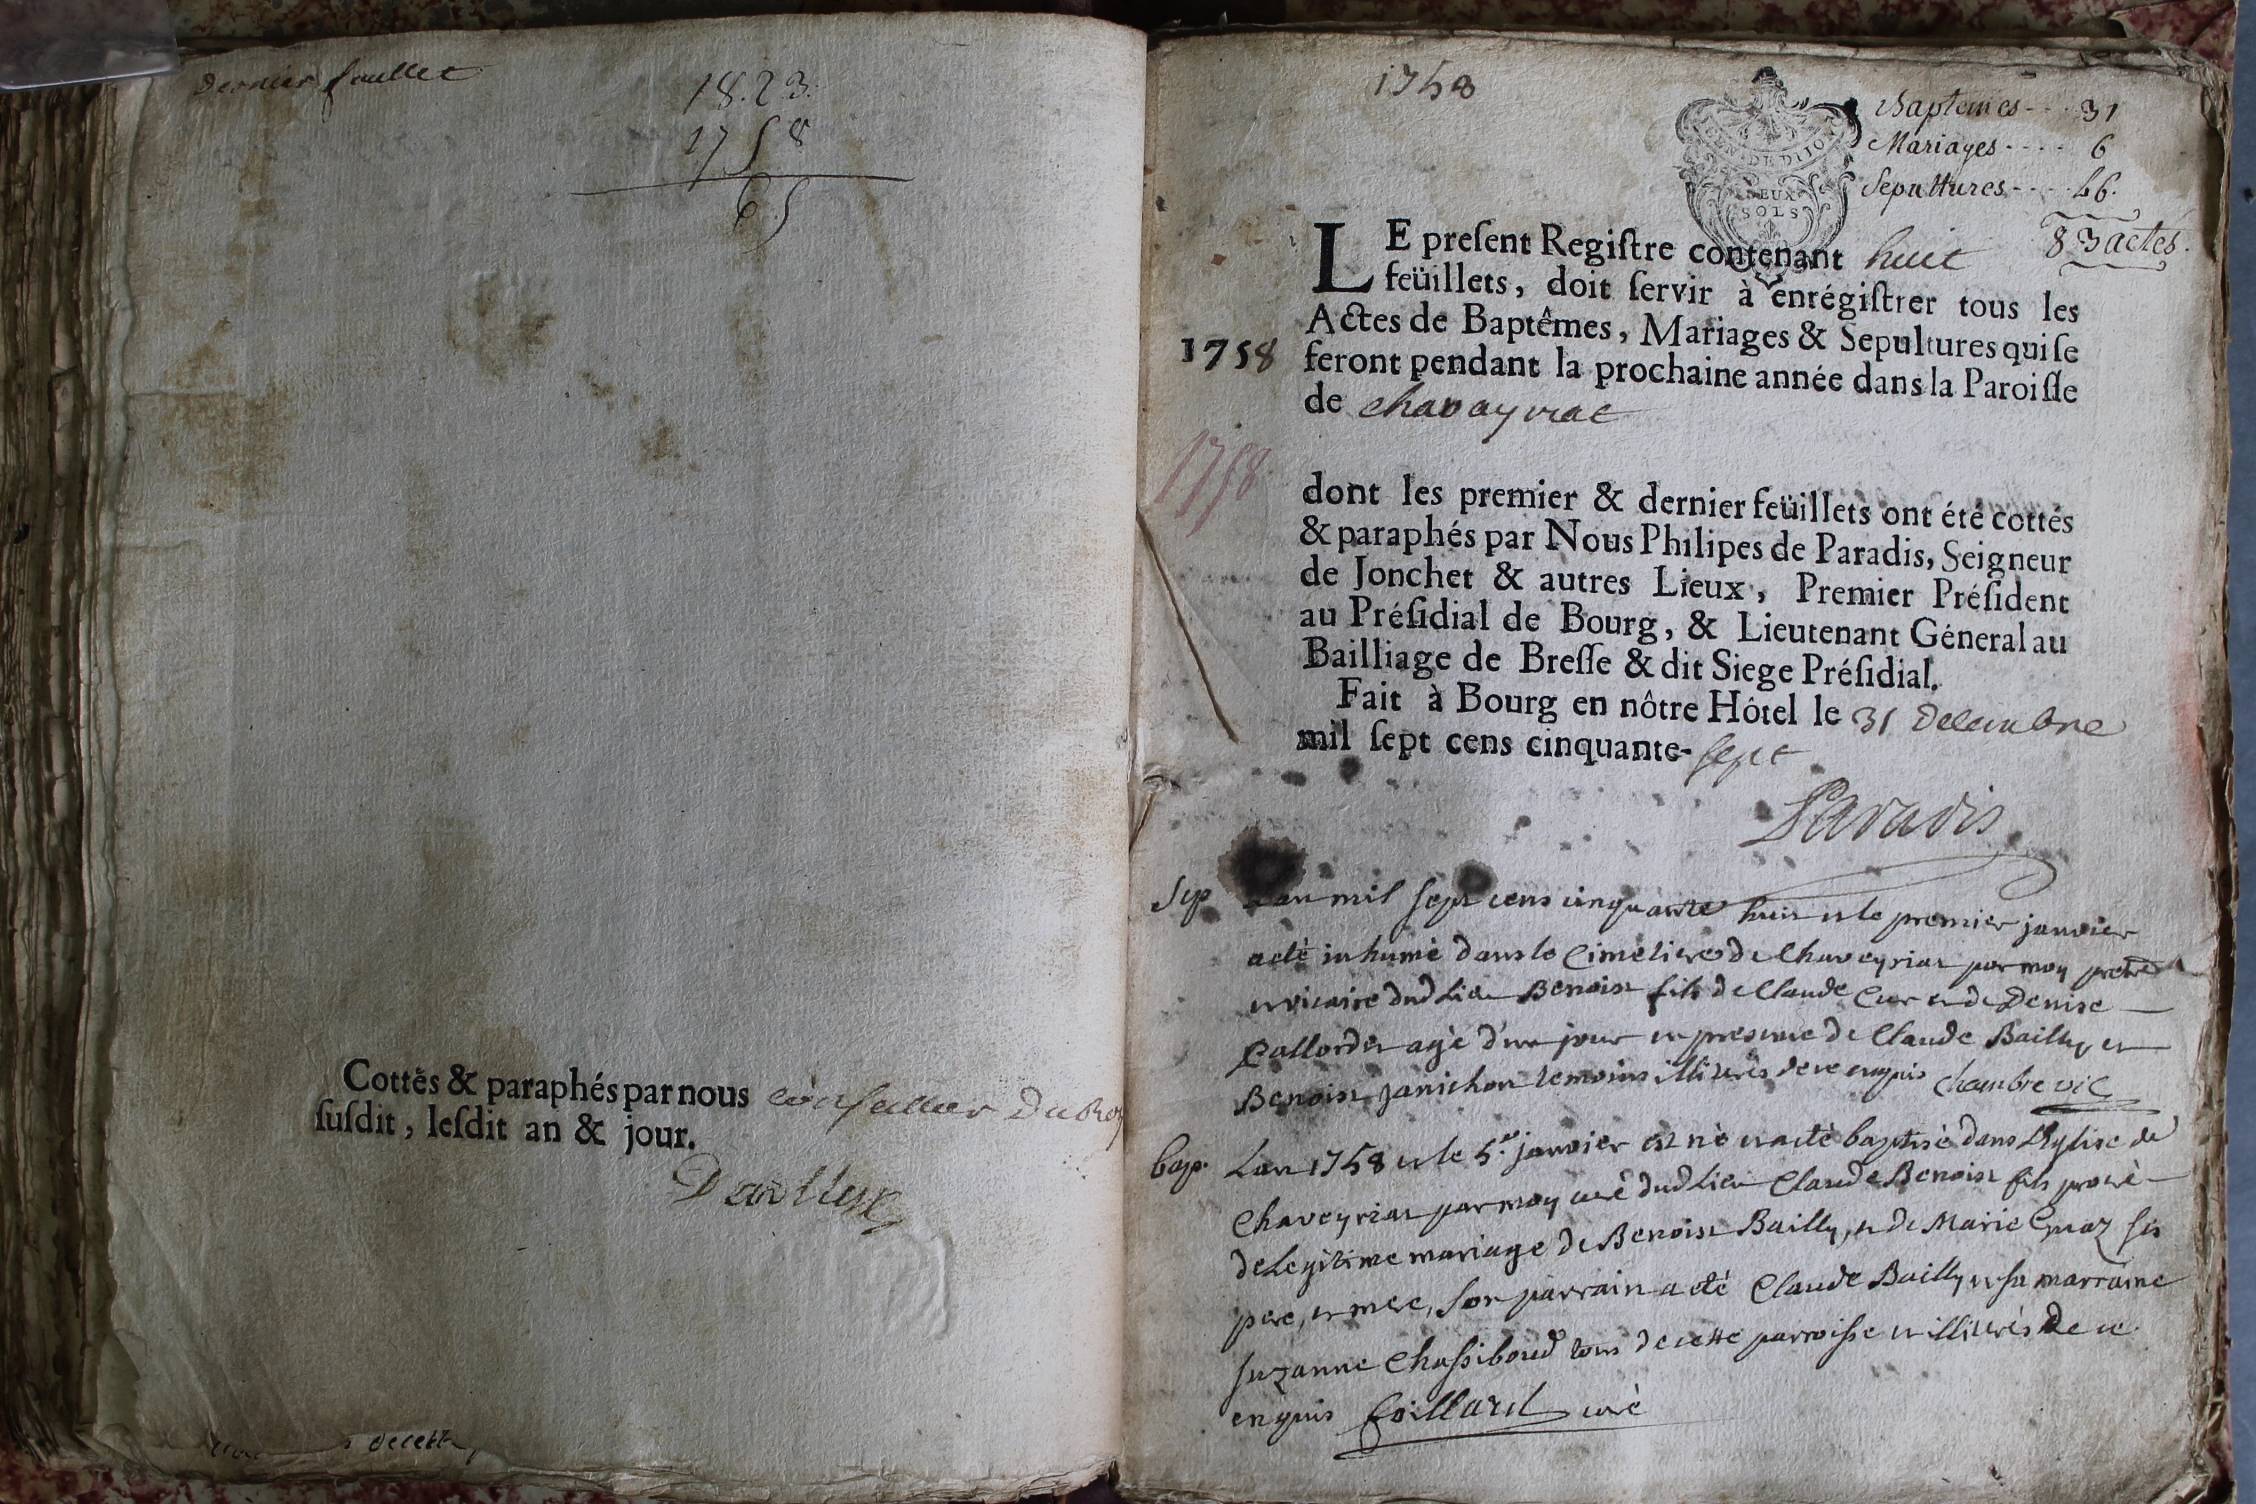 dernier feullet
18.23.
1758
65
Cottés & paraphés par nous conseiller du Roy
susdit, lesdit an & jour.
decette
1758
GEN. DE DIJON
DEUX
SOLS
Baptemes - - - 31
Mariages - - - - 6
Sepultures - - - 46.
83 actes.
LE preſent Regiſtre contenant huit
feüillets, doit ſervir à enrégiſtrer tous les
Actes de Baptêmes, Mariages & Sepultures qui ſe
1758 feront pendant la prochaine année dans la Paroiſſe
de chavayriat
1758
dont les premier & dernier feüillets ont été cottés
& paraphés par Nous Philipes de Paradis, Seigneur
de Jonchet & autres Lieux, Premier Préſident
au Préſidial de Bourg, & Lieutenant Géneral au
Bailliage de Breſſe & dit Siege Préſidial.
Fait à Bourg en nôtre Hôtel le 31 decembre
mil ſept cens cinquante-sept
Paradis
Sep Lan mil sept cens cinquante huit et le premier janvier
a eté inhumé dans le Cimetiere de Chaveyriat par moy pretre
et vicaire dud Lieu Benoist fils de Claude Cur et de Denise
agé d'un jour en presence de Claude Bailly et
Benoist Janichon temoins illiterés de ce enquis Chambre vic
bap. Lan 1758 et le 5.e janvier est né et a eté baptisé dans L'Eglise de
Chaveyriat par moy curé dud Lieu Claude Benoist fils procré
de Legitime mariage de Benoist Bailly, et de Marie Guaz ses
pere, et mere, son parrain a eté Claude Bailly et sa marraine
Suzanne Chassiboud tous de cette parroisse et illiterés de ce
enquis Goillard curé